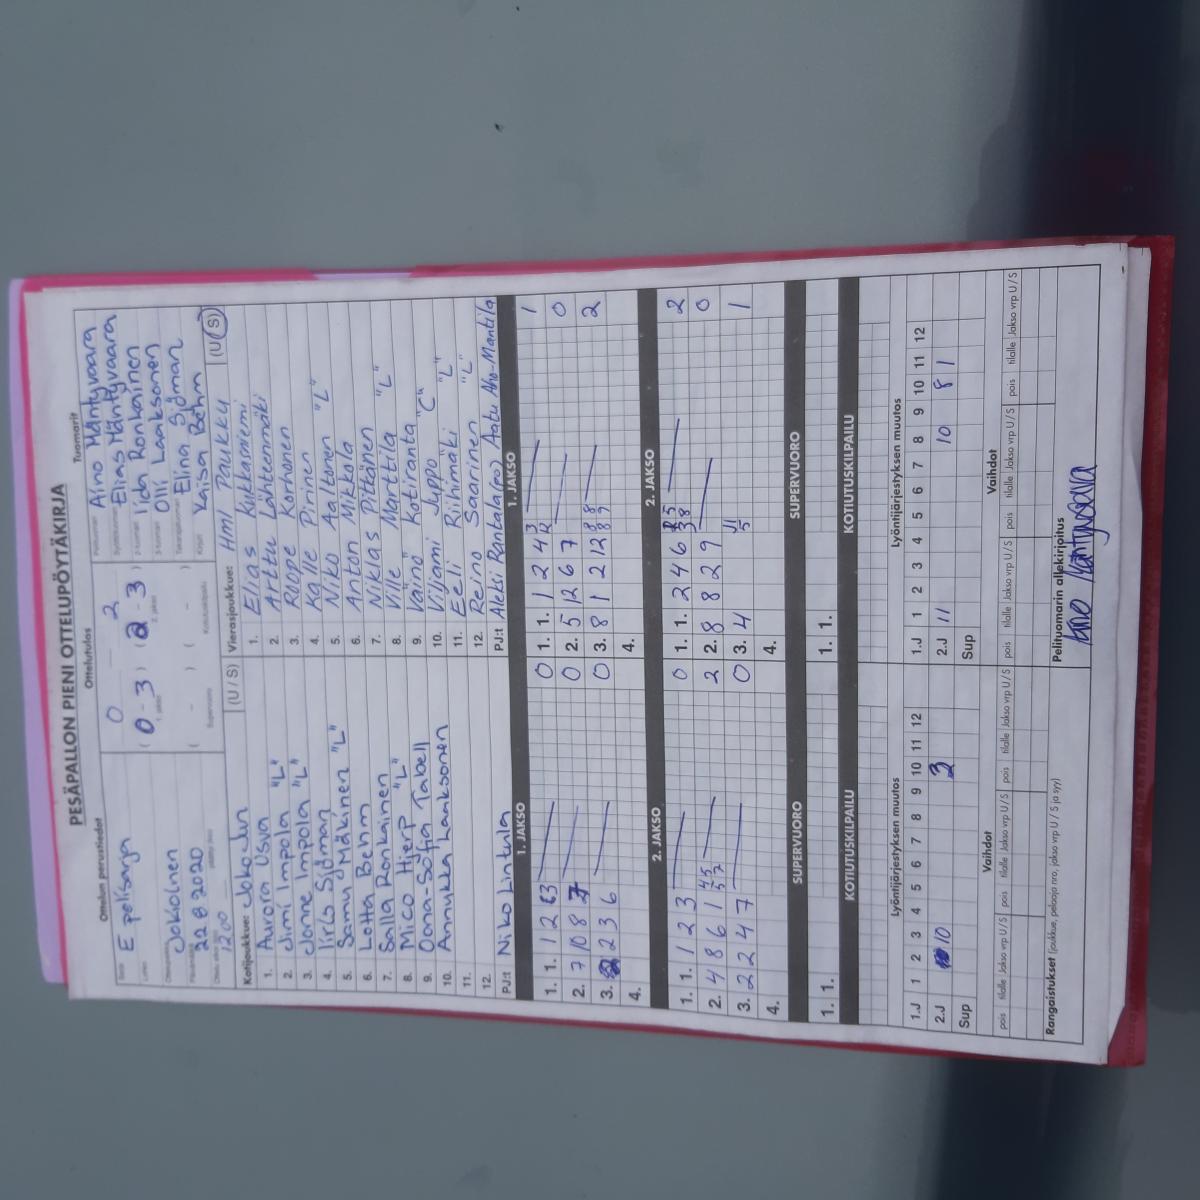 PESÄPALLON PIENI OTTELUPÖYTÄKIRJA
Ottelun perustiedot
Ottelutulos
Tuomarit
E pelisarja
Jokioinen
22 8 2020
1200
0 2
( 0 - 3 ) ( 2 - 3 )
1. jakso 2. jakso
( - ) ( - )
Supervuoro Kotiutuskilpailu
Aino Mäntyvaara
Elias Mäntyvaara
Iida Ronkainen
Olli Laaksonen
Elina Sjöman
Kaisa Behm
Kotijoukkue: Joko-Jun (U / S)
1. Aurora Usva
2. Jimi Impola "L"
3. Jonne Impola "L"
4. Iiris Sjöman
5. Samu Mäkinen "L"
6. Lotta Behm
7. Salla Ronkainen
8. Mico Hierp "L"
9. Oona-Sofia Tabell
10. Annukka Laaksonen
11.
12.
PJ:t Niko Lintula
Vierasjoukkue: HMl Paukku (U / S)
1. Elias Kukkaniemi
2. Arttu Lähteenmäki
3. Roope Korhonen
4. Kalle Pirinen
5. Niko Aaltonen "L"
6. Anton Mikkola
7. Niklas Pitkänen "L"
8. Ville Marttila
9. Väinö Kotiranta "C"
10. Viljami Juppo
11. Eeli Riihimäki "L"
12. Reino Saarinen "L"
PJ:t Aleksi Rantala(po) Aatu Aho-Mantila
1. JAKSO 1. JAKSO
1. 1. 1 2 3 0
2. 7 10 8 7 0
3. 2 3 6 0
4.
1. 1. 1 2 4 1
2. 5 12 6 7 0
3. 8 1 2 12 2
4.
2. JAKSO 2. JAKSO
1. 1. 1 2 3 0
2. 4 8 6 1 2
3. 2 2 4 7 0
4.
1. 1. 2 4 6 2
2. 8 8 2 9 0
3. 4 1
4.
SUPERVUORO SUPERVUORO
1. 1. 1. 1.
KOTIUTUSKILPAILU KOTIUTUSKILPAILU
Lyöntijärjestyksen muutos Lyöntijärjestyksen muutos
1.J 1 2 3 4 5 6 7 8 9 10 11 12
2.J 10 3
Sup
1.J 1 2 3 4 5 6 7 8 9 10 11 12
2.J 11 10 8 1
Sup
Vaihdot Vaihdot
pois tilalle Jakso vrp U / S pois tilalle Jakso vrp U / S pois tilalle Jakso vrp U / S
pois tilalle Jakso vrp U / S pois tilalle Jakso vrp U / S pois tilalle Jakso vrp U / S
Rangaistukset (joukkue, pelaaja nro, jakso vrp U / S ja syy)
Pelituomarin allekirjoitus
Aino Mäntyvaara